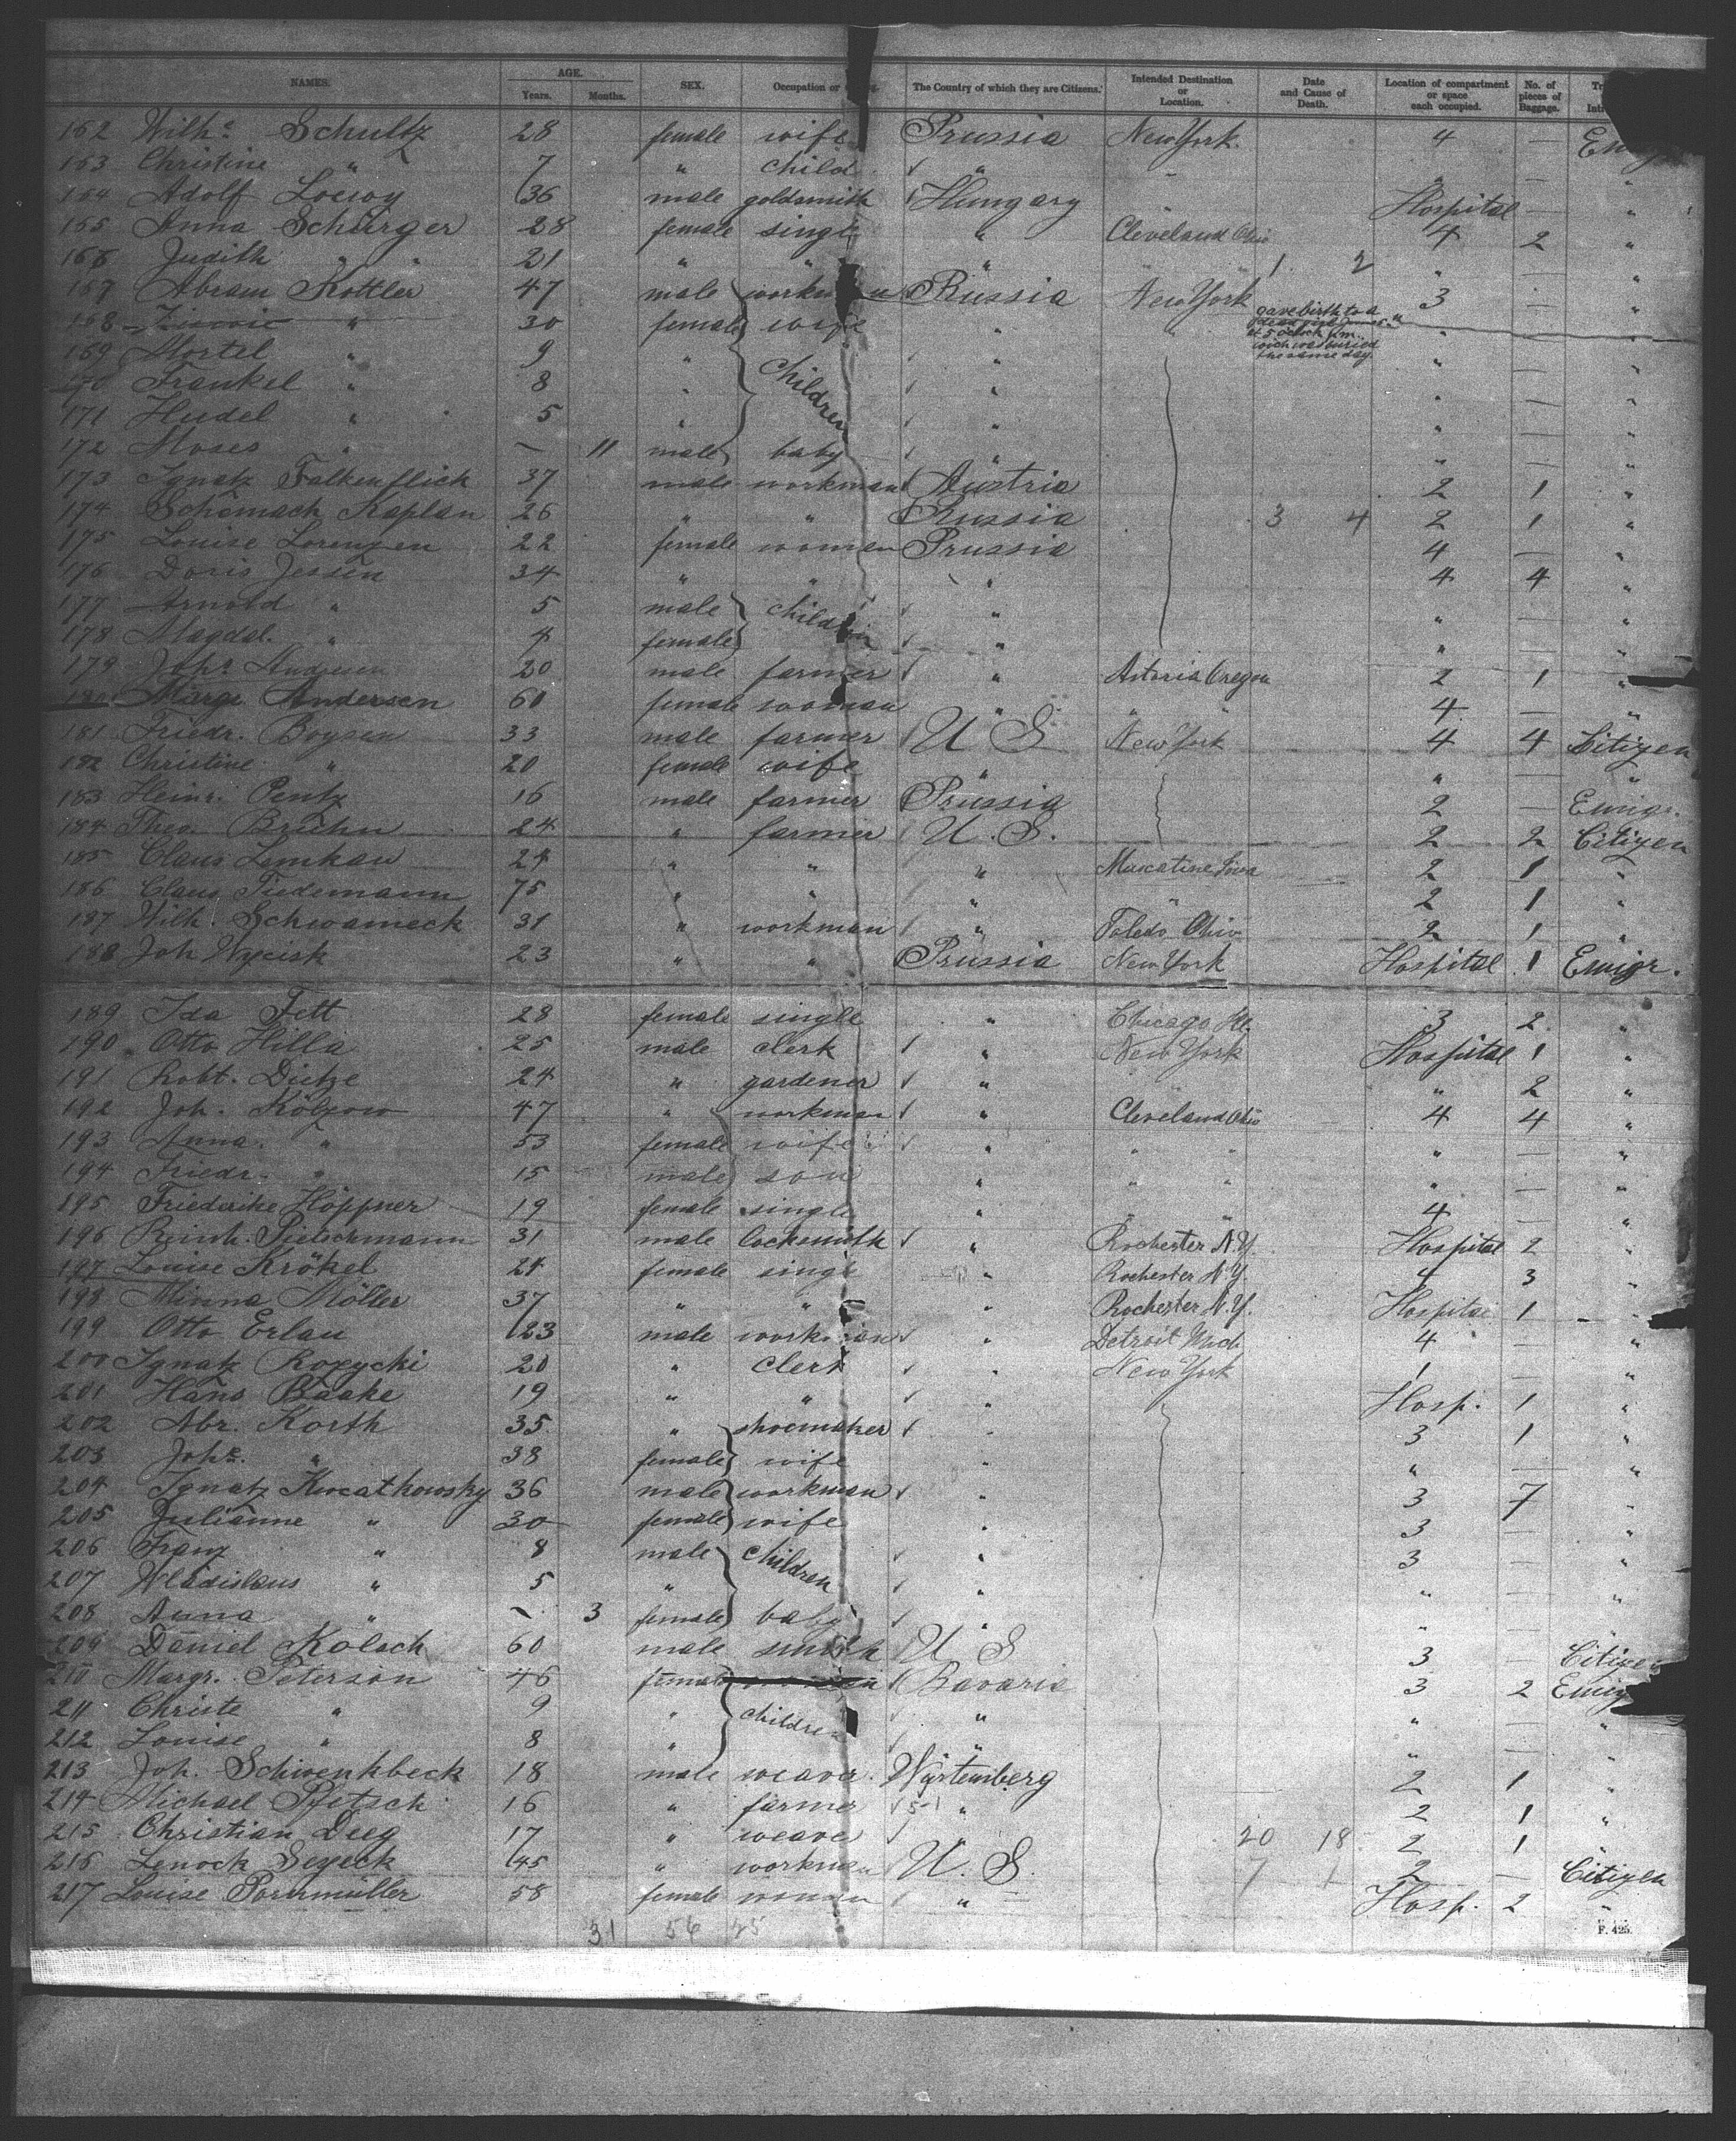 NAMES. AGE. Years. Months. SEX. Occupation or The Country of which they are Citizens. Intended Destination or Location. Date and Cause of Death. Location of compartment or space each occupied. No. of pieces of Baggage.
162 Wilh.e Schultz 28 female wife Prussia New York. 4 —
163 Christine " 7 " child " " " — "
164 Adolf Loewy 36 male goldsmith Hungary " Hospital — "
165 Anna Schürger 28 female single " Cleveland Ohio 4 2 "
166 Judith " " 21 " " " " 1 2 " - "
167 Abram Kottler 47 male workman Russia New York 3 — "
168 " 30 female wife " " gave birth to a at 5 o'clock wich was buried the same day. " — "
169 Mortel " 9 " children " " — "
170 Frankel " 8 " " " — "
171 Hudel " 5 " " " — "
172 Moses " — 11 male baby " " — "
173 Ignatz Falkenflick 37 male workman Austria 2 1 "
174 Schemach Kaplan 26 " " Russia 3 4 2 1 "
175 Louise Lorenzen 22 female woman Prussia 4 — "
176 Doris Jessen 34 " " " 4 4 "
177 Arnold " 5 male children " " — "
178 Magdal. " 4 female " " — "
179 Joh.s Andresen 20 male farmer " Astoria Oregon 2 1 "
180 Margr. Andersen 60 female woman " " " 4 — "
181 Friedr. Boysen 33 male farmer U S New York 4 4 Citizen
182 Christine " 20 female wife " " — "
183 Heinr. Pentz 16 male farmer Prussia 2 — Emigr.
184 Theo. Bruhn 24 " farmer U. S. 2 2 Citizen
185 Claus Lemkau 24 " " " Muscatine Iowa 2 1 "
186 Claus Tiedemann 75 " " " " 2 1 "
187 Wilh. Schwameck 31 " workman " Toledo Ohio 2 1 "
188 Joh Wycisk 23 " " Prussia New York Hospital 1 Emigr.
189 Ida Fett 28 female single " Chicago Ill. 3 2 "
190 Otto Hilla 25 male clerk " New York Hospital 1 "
191 Robt. Dietze 24 " gardener " " " 2 "
192 Joh. Kölzow 47 " workman " Cleveland Ohio 4 4 "
193 Anna. " 53 female wife " " " " — "
194 Friedr. " 15 male son " " " " — "
195 Friederike Höppner 19 female single " " " 4 — "
196 Reinh. Pietschmann 31 male locksmith " Rochester N.Y. Hospital 2 "
197 Louise Krökel 24 female single " Rochester N.Y. 4 3 "
198 Minna Möller 37 " " " Rochester N.Y. Hospital 1 "
199 Otto Erlau 23 male workman " Detroit Mich. 4 — "
200 Ignatz Rozycki 20 " clerk " New York 1 — "
201 Hans Baake 19 " " " Hosp. 1 "
202 Abr. Korth 35 " shoemaker " 3 1 "
203 Joh.e " 38 female wife " " — "
204 Ignatz Kwcathowsky 36 male workman " 3 7 "
205 Julianne " 30 female wife " 3 — "
206 Franz " 8 male children " 3 — "
207 Wladislaus " 5 " " " — "
208 Anna " — 3 female baby " " — "
209 Daniel Kölsch 60 male smith U S 3 — Citizen
210 Margr. Peterson 46 female Bavaria 3 2
211 Christe " 9 " children " " — "
212 Louise " 8 " " " — "
213 Joh. Schwenkbeck 18 male weaver Würtemberg 2 1 "
214 Michael Pfetsch 16 " farmer 51 " 2 1 "
215 Christian Deeg 17 " weaver " 20 18 2 1 "
216 Lenock Seyeck 45 " workman U. S. 7 1 2 — Citizen
217 Louise Pornmüller 58 female woman " Hosp. 2 "
31 56 25
F. 425.